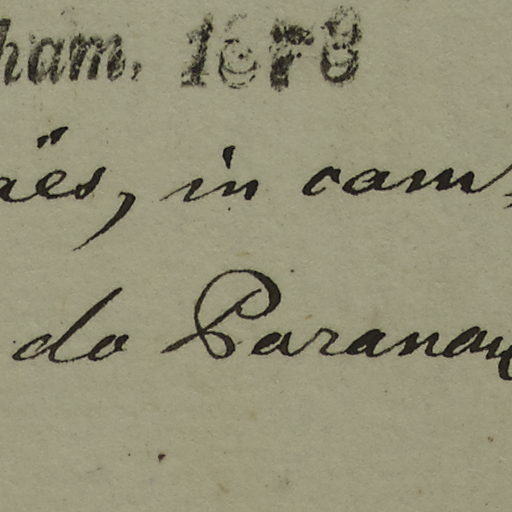 ham. 1878
aës, in cam
do Paranau